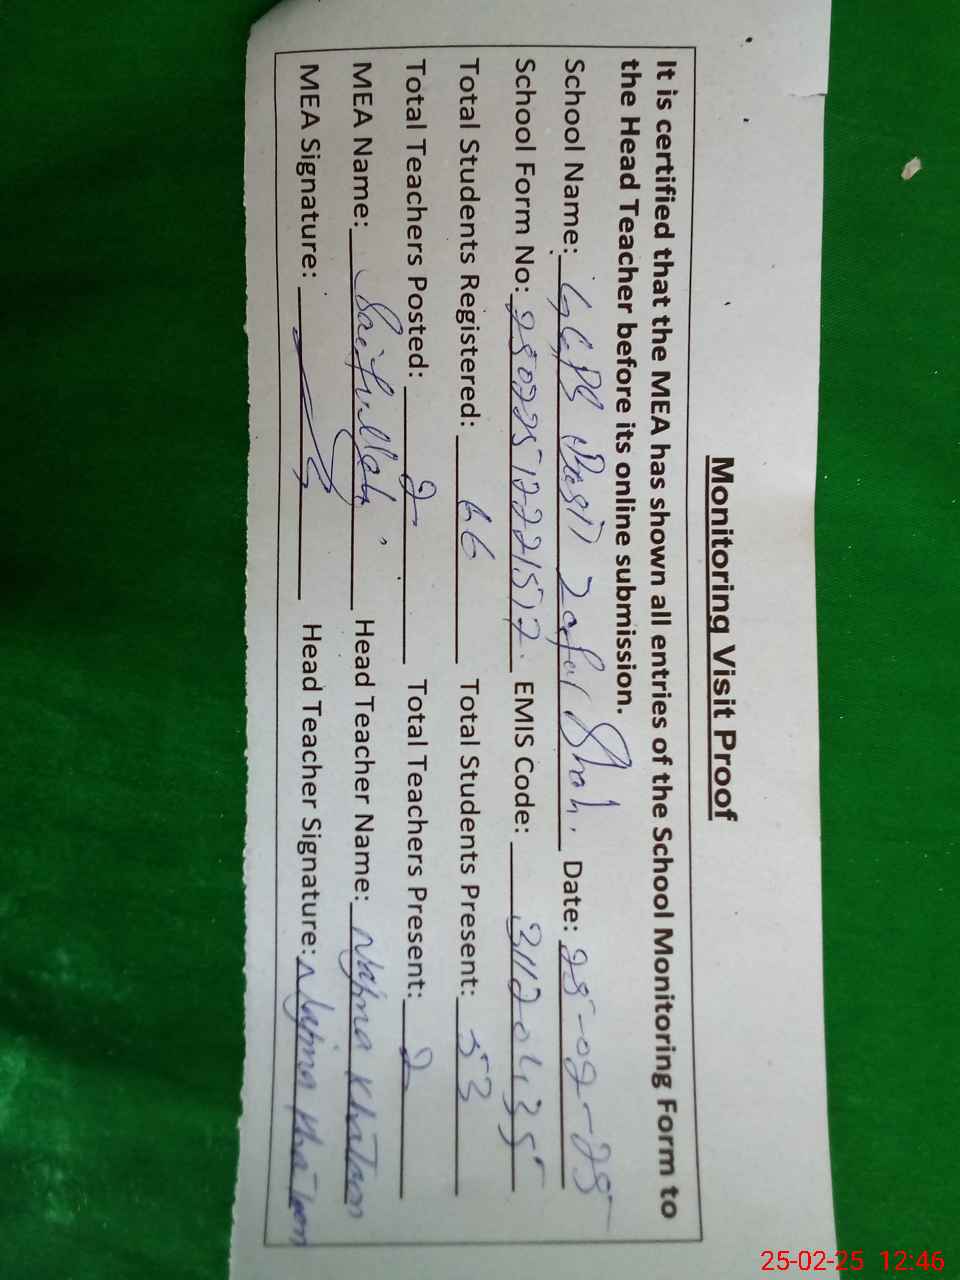 Monitoring Visit Proof
It is certified that the MEA has shown all entries of the School Monitoring Form to
the Head Teacher before its online submission.
School Name: GGPS Basti Zafar Shah. Date: 25-02-25
School Form No: 25022512221517. EMIS Code:
Total Students Registered: 66 Total Students Present: 53
Total Teachers Posted: 2 Total Teachers Present: 2
MEA Name: Saifullah Head Teacher Name: Najma Khatoon
MEA Signature: Head Teacher Signature: Najma Khatoon
25-02-25 12:46